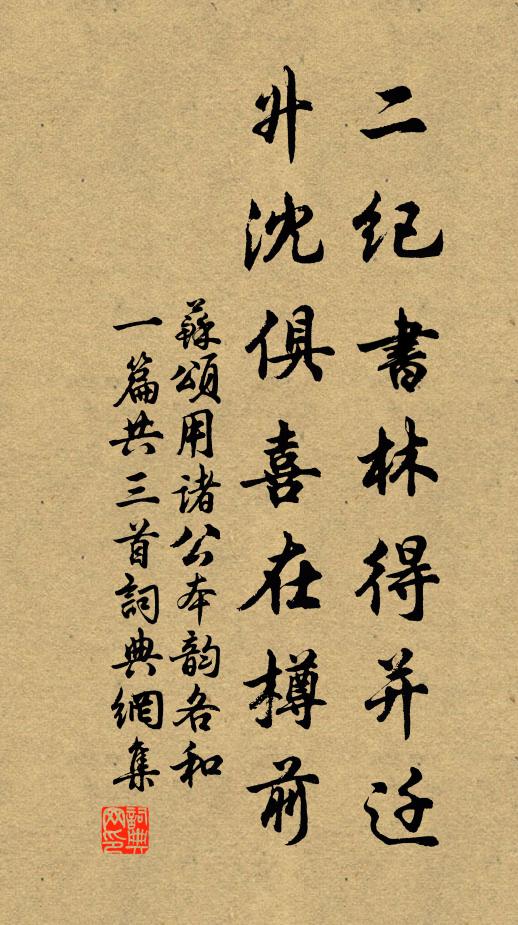 二纪書林得并迁
升沈俱喜在樽前
蘇頌用诸公本韵各和
一篇共三首詞典網集
詞典网印